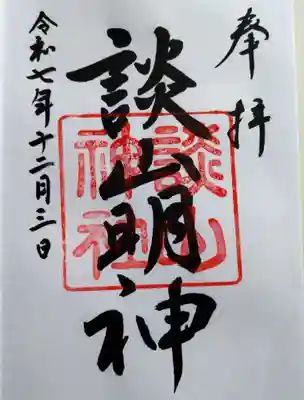 奉拝
談山明神
談山神社
令和七年十二月三日